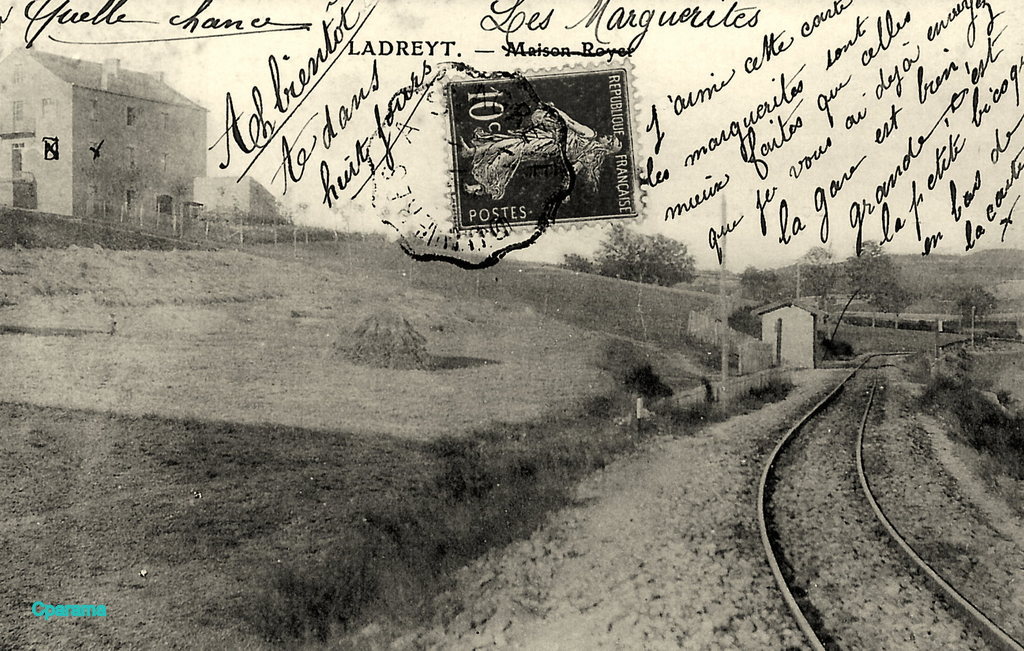 Quelle chance
Les Marguerites
LADREYT. — Maison Royer
A bientôt
te dans
huit jours
10c
REPUBLIQUE FRANÇAISE
POSTES
J'aime cette carte
les marguerites sont
mieux faites que celles
que je vous ai déjà envoyez
la gare est bien
grande, c'est
la petite bicoque
en bas de
la carte
x
Cparama